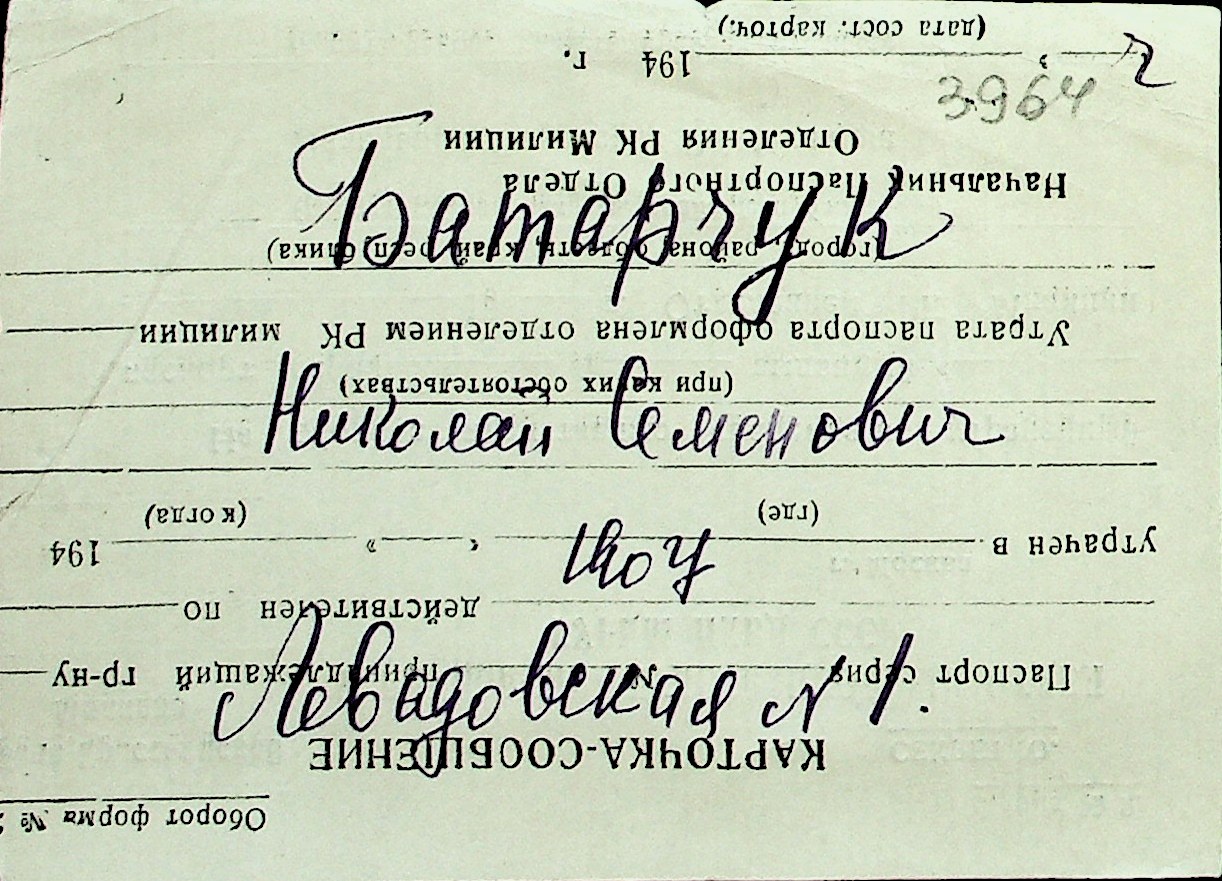 г
3964
Батарчук
Николай Семенович
1907
Левадовская № 1.
Оборот форма №
КАРТОЧКА-СООБЩЕНИЕ
Паспорт серия № принадлежащий гр-ну
действителен по
утрачен в " " 194
(где) (когда)
(при каких обстоятельствах)
Утрата паспорта оформлена отделением РК милиции
(город, района, область, край, республика)
Начальник Паспортного Отдела
Отделения РК Милиции
" 194 г.
(дата сост. карточ.)